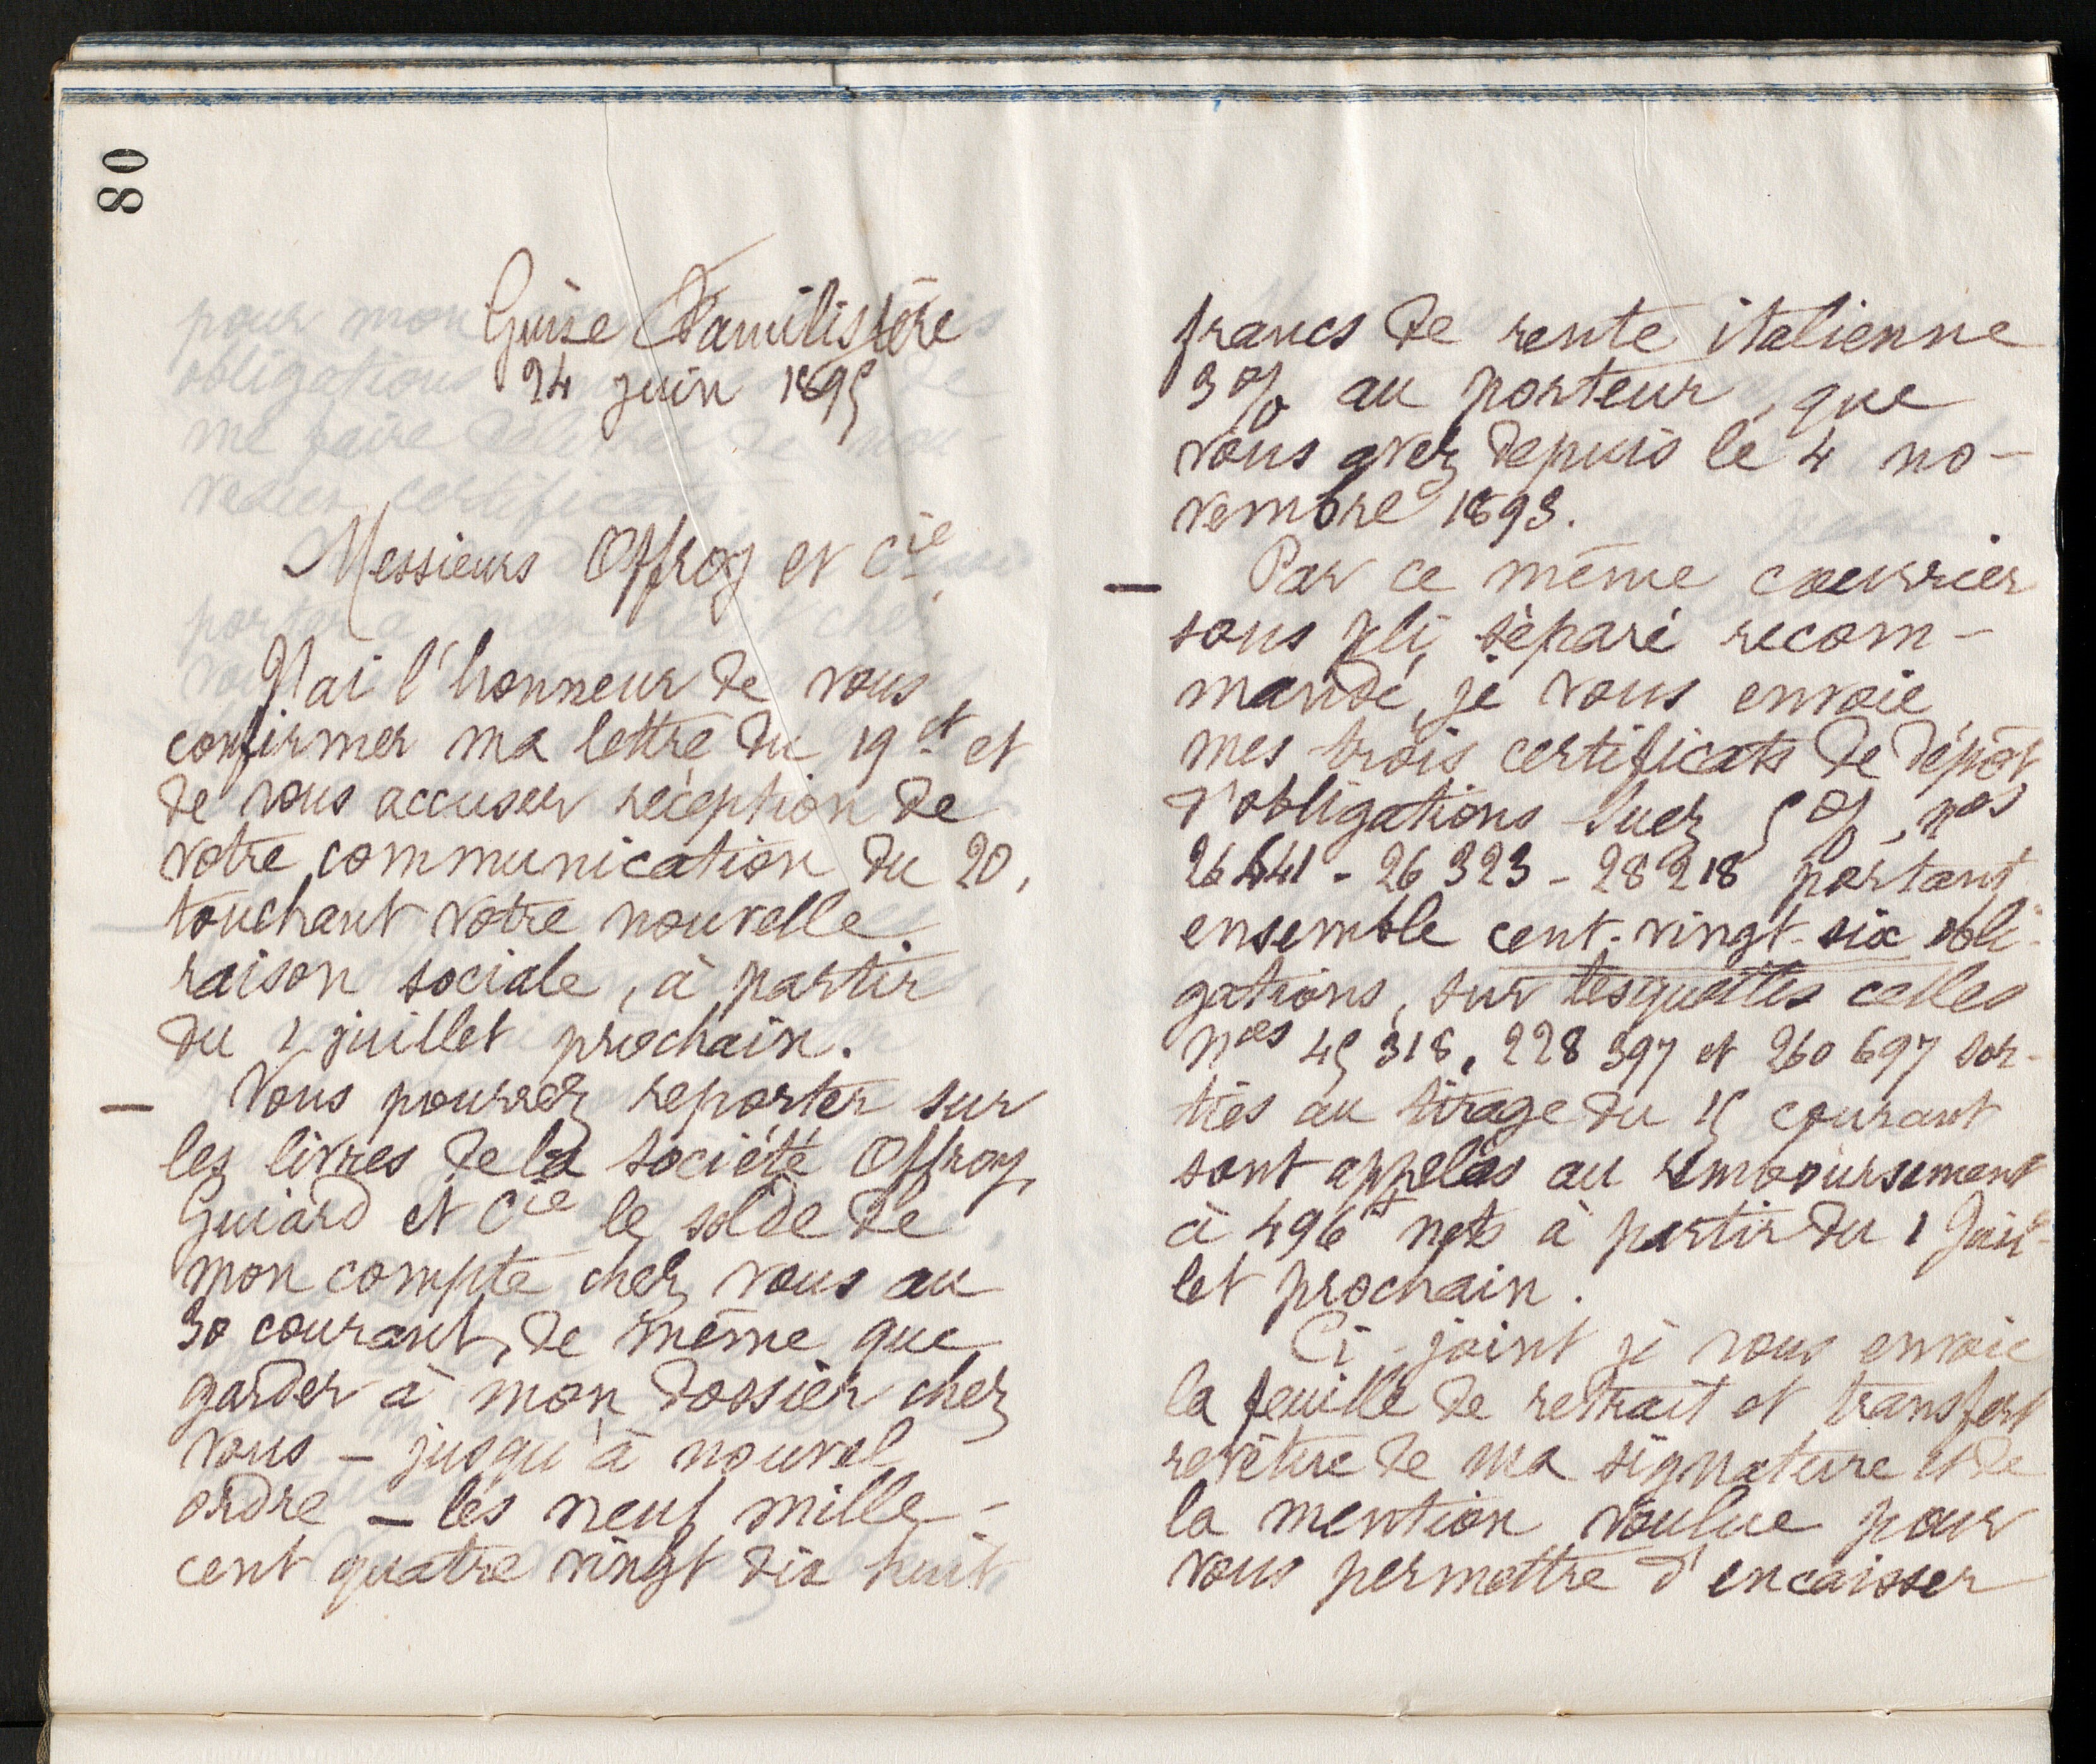 80
Guise Familistère
24 juin 1895
Messieurs Offroy et Cie,
J'ai l'honneur de vous
confirmer ma lettre du 19 ct et
de vous accuser réception de
votre communication du 20,
touchant votre nouvelle
raison sociale, à partir
du 1 juillet prochain.
— Vous pourrez reporter sur
les livres de la société Offroy,
Guiard et Cie le solde de
mon compte chez vous au
30 courant, de même que
garder à mon dossier chez
vous – jusqu'à nouvel
ordre – les neuf mille
cent quatre vingt dix huit
francs de rente italienne
3 % au porteur, que
vous avez depuis le 4 no-
vembre 1893.
— Par ce même courrier
sous pli séparé recom-
mandé, je vous envoie
mes trois certificats de dépôt
d'obligations Suez 5 %, nos
26 441 - 26 323 - 28 218 portant
ensemble cent-vingt-six obli-
gations, sur lesquelles celles
nos 45 318, 228 397 et 260 697 sor-
ties au tirage du 15 courant
sont appelées au remboursement
à 496 f nets à partir du 1 Juil-
let prochain.
Ci-joint je vous envoie
la feuille de retrait et transfert
revêtue de ma signature et de
la mention voulue pour
vous permettre d'encaisser